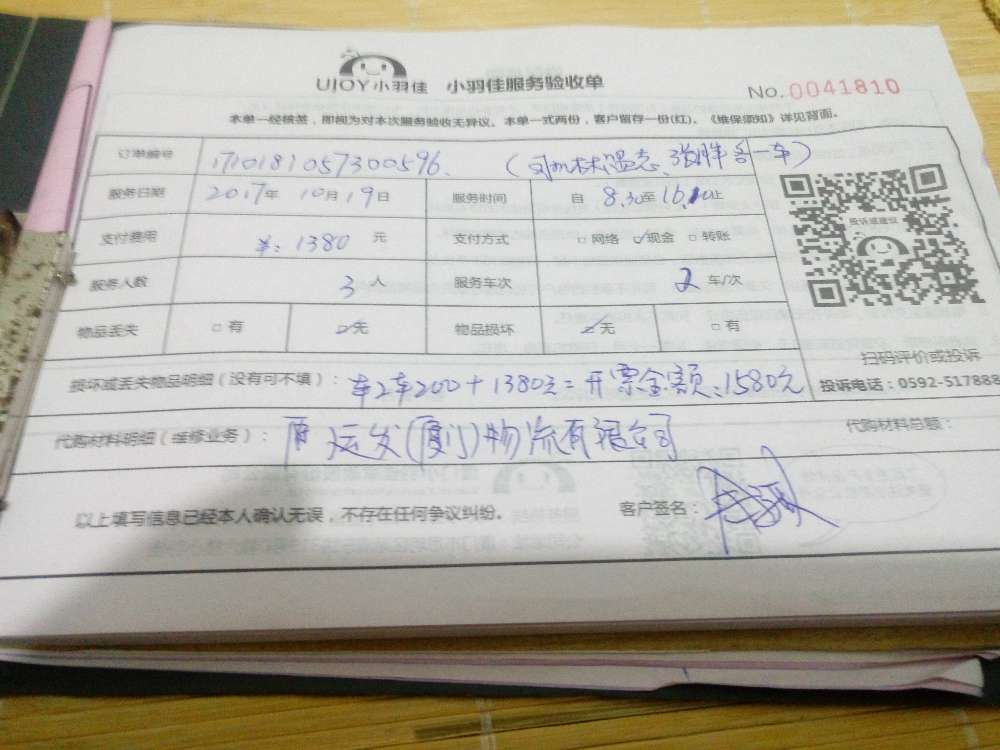 UJOY小羽佳 小羽佳服务验收单
No. 0041810
本单一经核签，即视为对本次服务验收无异议。本单一式两份，客户留存一份(红)。《维保须知》详见背面。
订单编号 1710181057300596. (司机林温志、张胜各一车)
服务日期 2017年 10月19日 服务时间 自 8.30至16.10止
支付费用 ¥：1380 元 支付方式 □网络 ☑现金 □转账
服务人数 3人 服务车次 2 车/次
物品丢失 □有 ☑无 物品损坏 ☑无 □有
投诉或建议
扫码评价或投诉
投诉电话：0592-517888
损坏或丢失物品明细（没有可不填）： 车2车200+1380元=开票金额、1580元
代购材料明细（维修业务）： 运发(厦门)物流有限公司
代购材料总额：
以上填写信息已经本人确认无误，不存在任何争议纠纷。
客户签名：